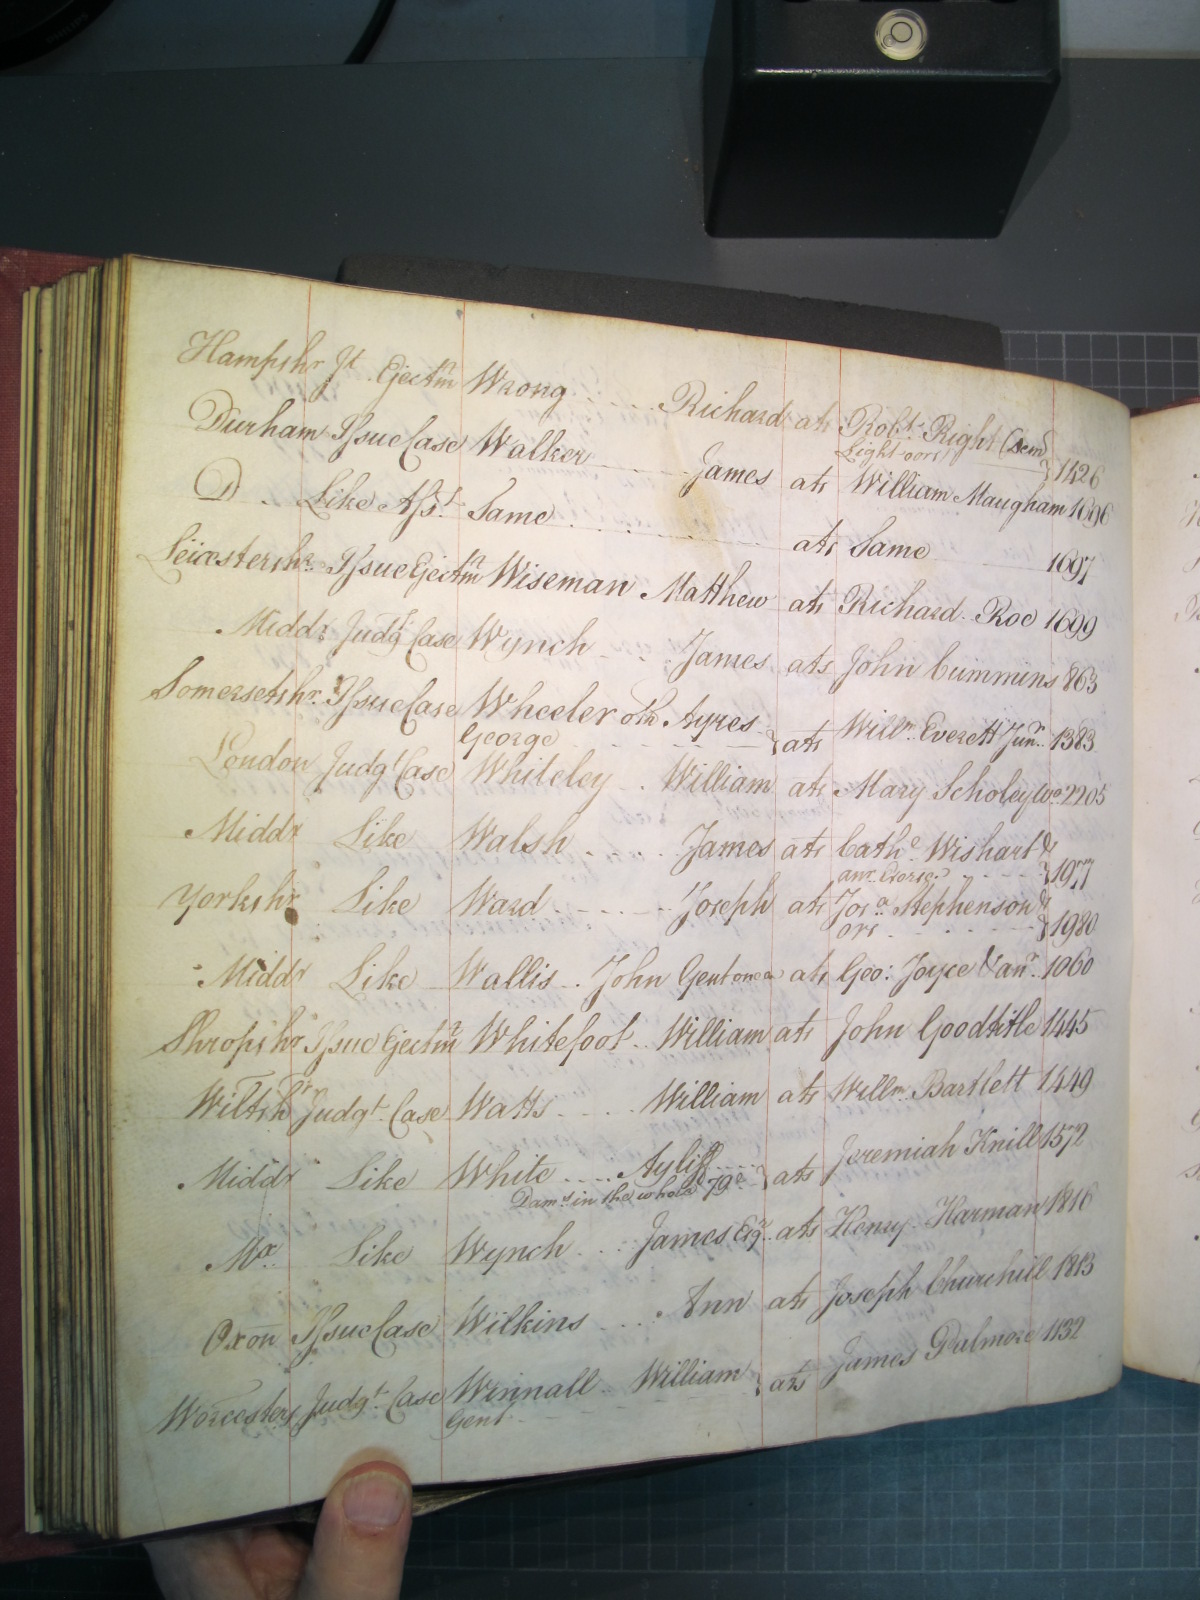 Hampshr Jt Ejectmn Wrong Richard ats Robt. Right (dem
Lightfoot) 1426
Durham Issue Case Walker James ats William Maugham 1696
D Like Asst. Same ats Same 1697
Leicestershr. Issue Ejectmn Wiseman Matthew ats Richard Roe 1699
Middx Judgt Case Wynch James ats John Cummins 863
Somersetshr. Issue Case Wheeler oth Ayres
George ats Willm. Everett Junr. 1383
London Judgt Case Whiteley William ats Mary Scholey Wo. 2205
Middx Like Walsh James ats Cathe. Wishart &
anr. Exors. 1977
Yorkshr Like Ward Joseph ats Josa. Stephenson &
ors 1980
Middx Like Wallis John Gent one &c ats Geo: Joyce & anr. 1060
Shropshr Issue Ejectmn Whitefoot William ats John Goodtitle 1445
Wiltshr Judgt. Case Watts William ats Willm. Bartlett 1449
Middx Like White Ayliff ats Jeremiah Knill 1572
Dams in the whole 79
Mx. Like Wynch James Esqr. ats Henry Harman 1816
Oxon Issue Case Wilkins Ann ats Joseph Churchill 1813
Worcester Judgt. Case Winnall William ats James Dulmore 1132
Gent